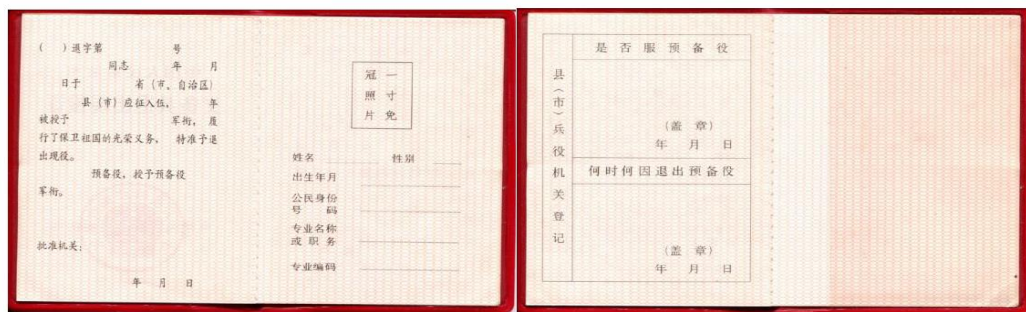 ( ) 退字第 号
同志 年 月
日于 省(市、自治区)
县(市)应征入伍, 年
被授予 军衔,履
行了保卫祖国的光荣义务, 特准予退
出现役。
预备役,授予预备役
军衔。
批准机关:
年 月 日
冠 一
照 寸
片 免
姓名 性别
出生年月
公民身份
号 码
专业名称
或 职 务
专业编码
县(市)兵役机关登记
是否服预备役
(盖 章)
年 月 日
何时何因退出预备役
(盖 章)
年 月 日